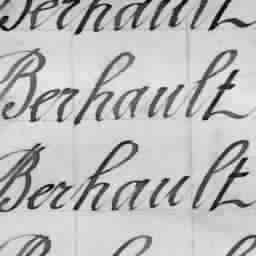 Berhault
Berhault
Berhault